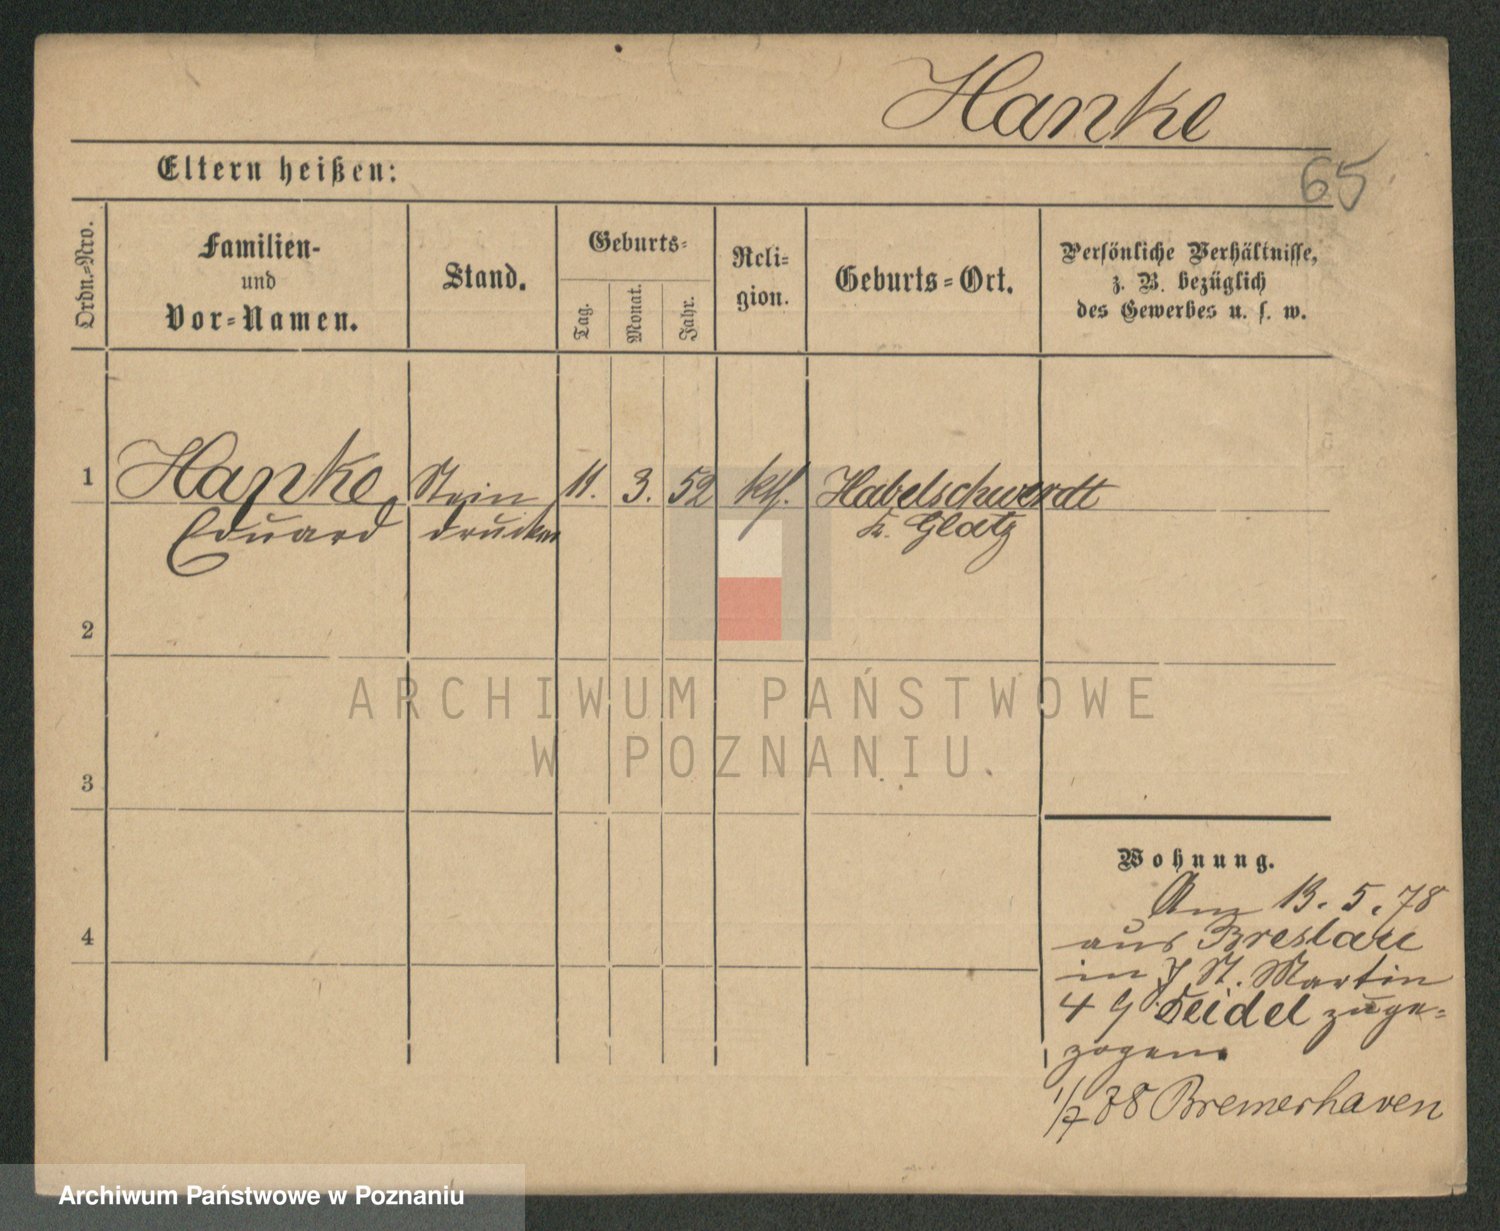 Hanke
65
Eltern heißen:
Ordn.-Nro.
Familien-
und
Vor-Namen.
Stand.
Geburts-
Tag.
Monat.
Jahr.
Reli-
gion.
Geburts-Ort.
Persönliche Verhältnisse,
z. B. bezüglich
des Gewerbes u. s. w.
1
Hanke
Stein
11.
3.
52
kth.
Habelschwerdt
Eduard
drucker
Kr. Glatz
2
ARCHIWUM PAŃSTWOWE
W POZNANIU.
3
Wohnung.
Am 13. 5. 78
aus Breslau
4
in St. Martin
4 Seidel zuge-
zogen.
1/7 78 Bremerhaven
Archiwum Państwowe w Poznaniu